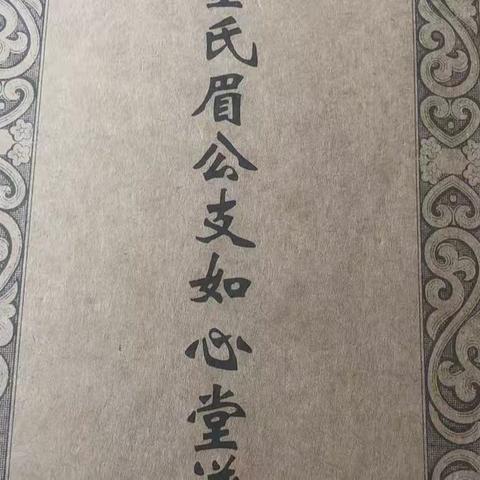 氏眉公支如心堂